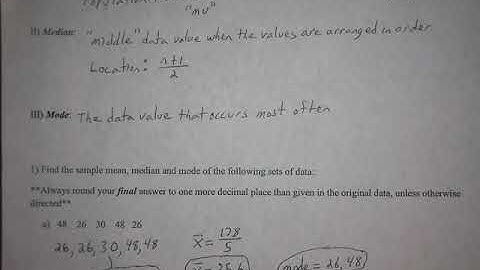 "mu"
II) Median: "middle" data value when the values are arranged in order
Location: n+1
2
III) Mode: The data value that occurs most often
1) Find the sample mean, median and mode of the following sets of data:
**Always round your final answer to one more decimal place than given in the original data, unless otherwise
directed**
a) 48 26 30 48 26
26, 26, 30, 48, 48
x̄ = 178
5
x̄ = 35.6
mode = 26, 48